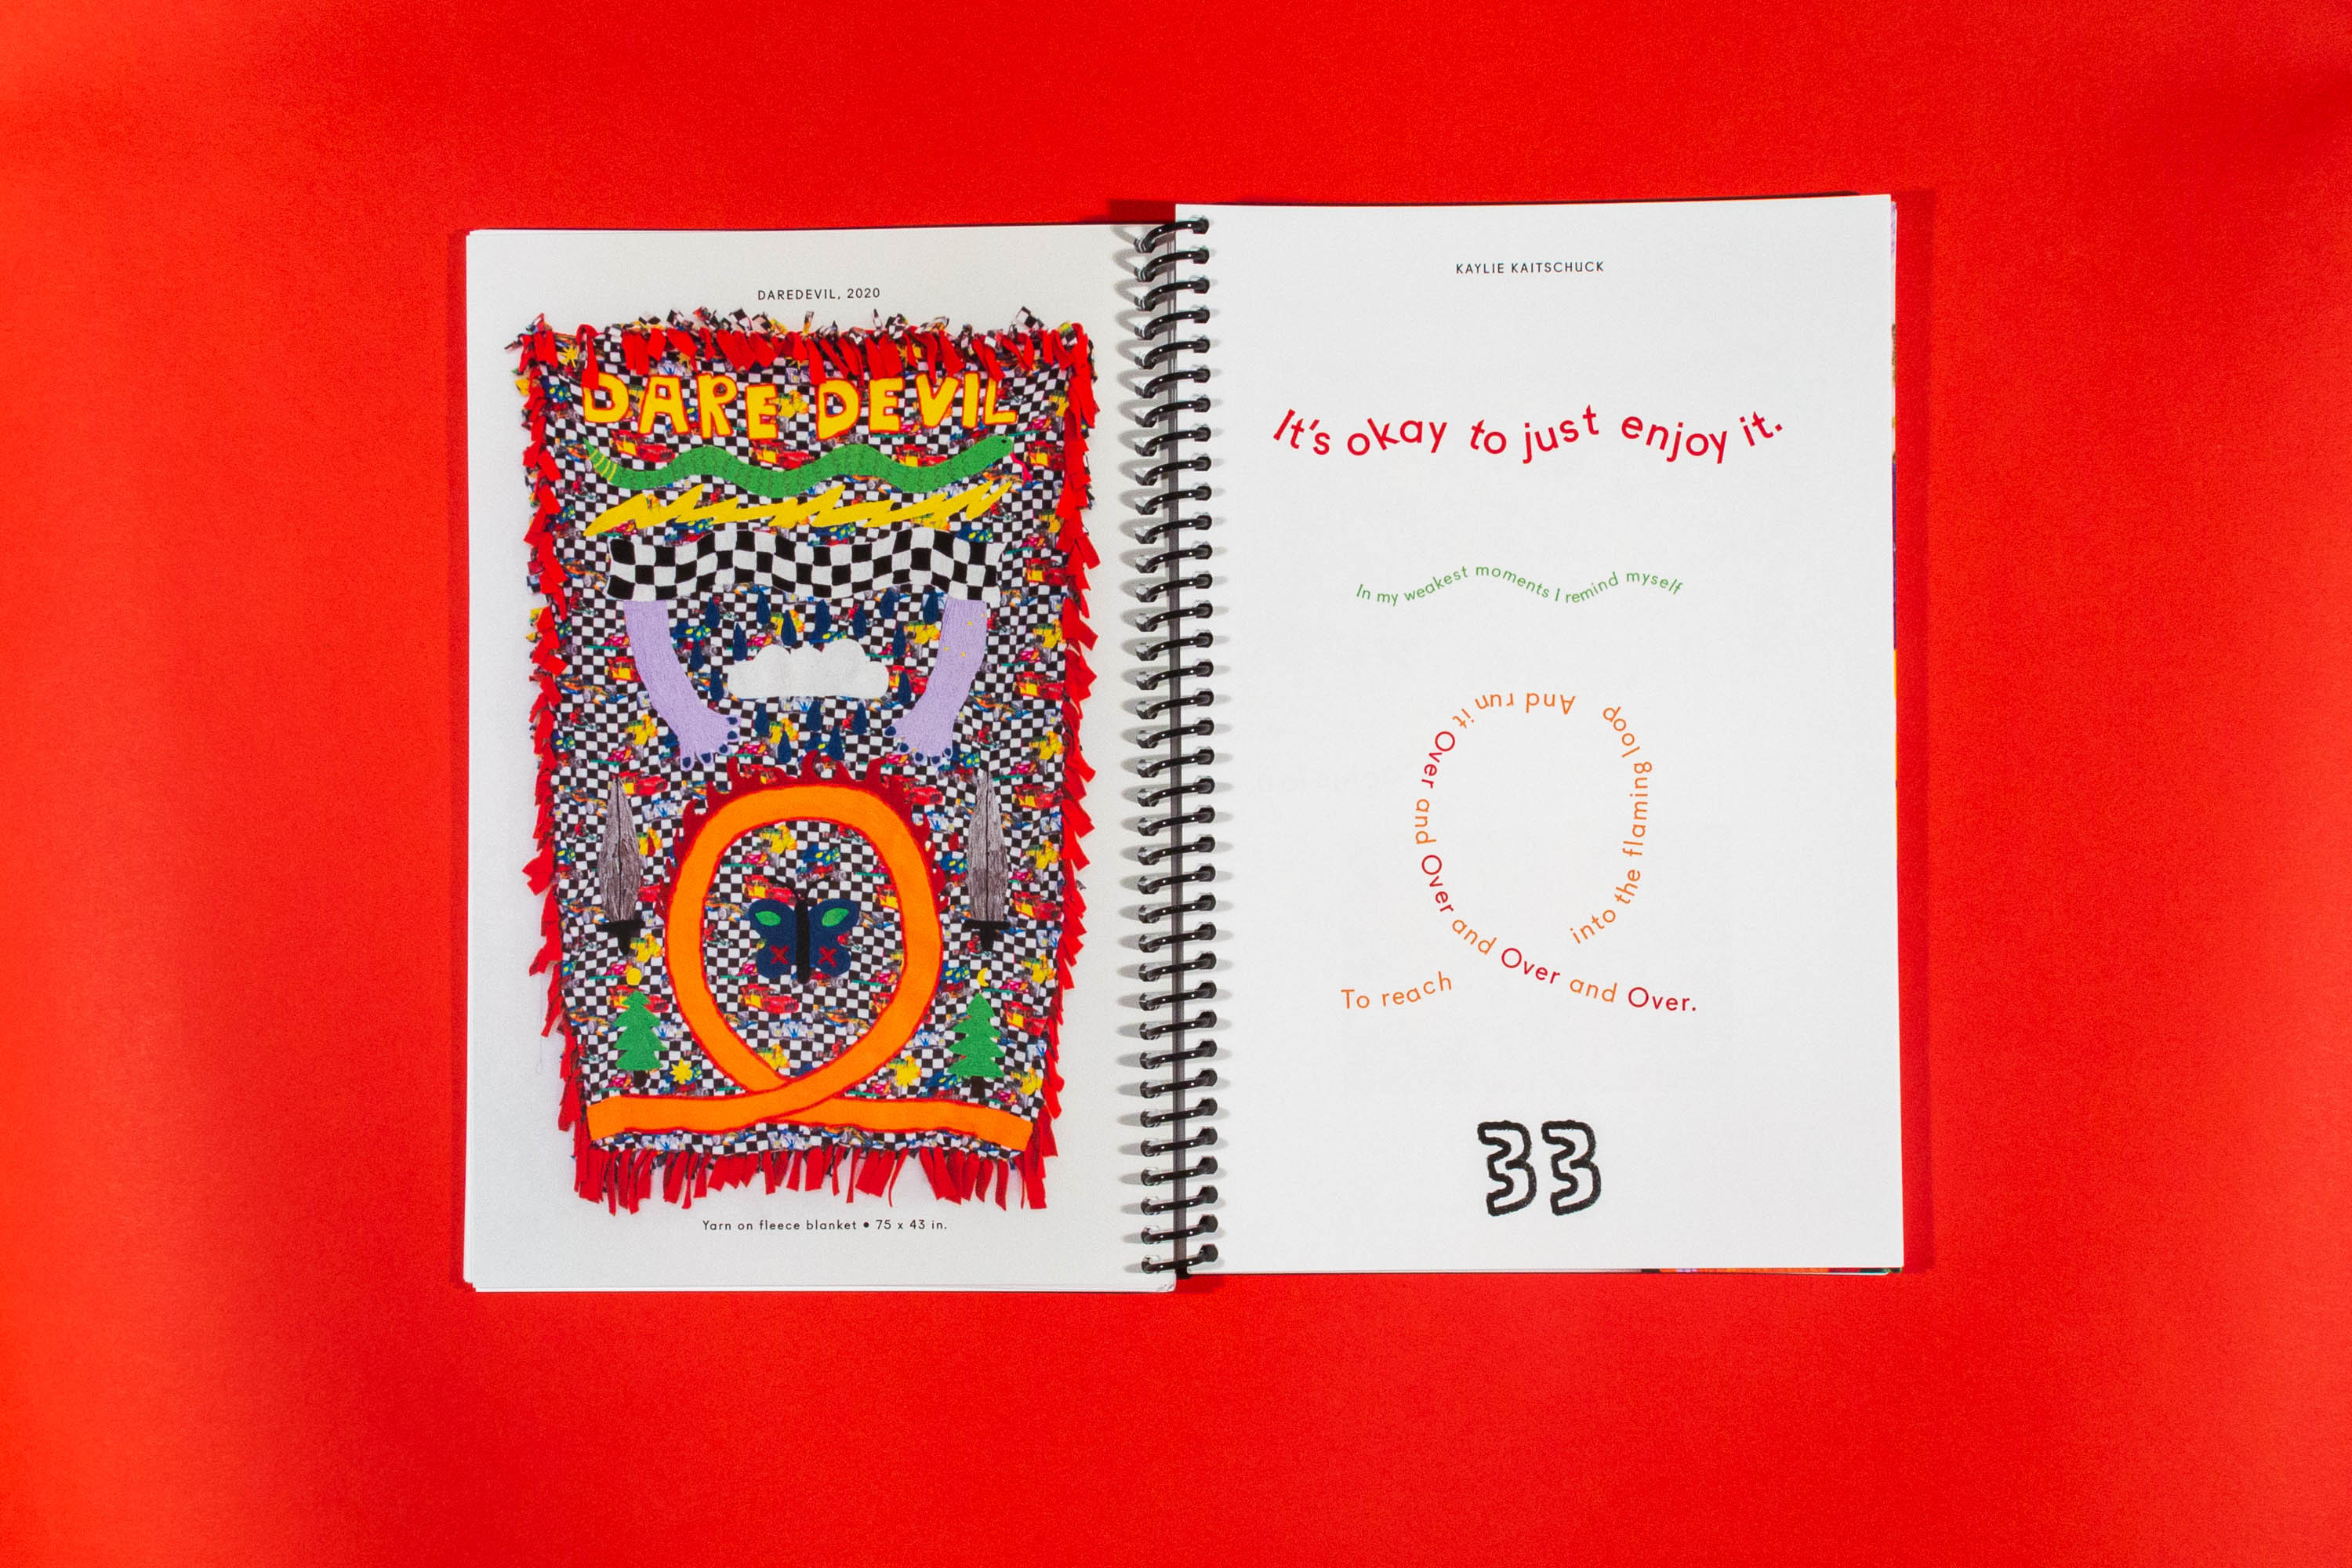 DAREDEVIL, 2020
DARE DEVIL
Yarn on fleece blanket • 75 x 43 in.
KAYLIE KAITSCHUCK
It's okay to just enjoy it.
In my weakest moments I remind myself
To reach
into the flaming loop
And run it Over and Over and Over and Over.
33